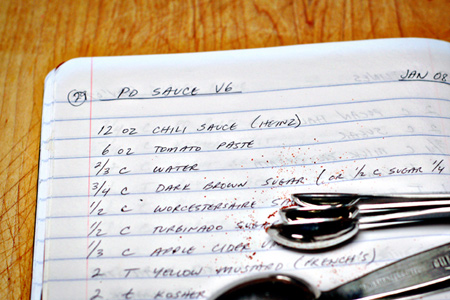 2 PD SAUCE V6 JAN 08
12 OZ CHILI SAUCE (HEINZ)
6 OZ TOMATO PASTE
2/3 C WATER
3/4 C DARK BROWN SUGAR (OR 1/2 C, SUGAR 1/4
1/2 C WORCESTERSHIRE
1/2 C TURBINADO SUGA
1/3 C APPLE CIDER V
2 T YELLOW MUSTARD (FRENCH'S)
2 t KOSHER